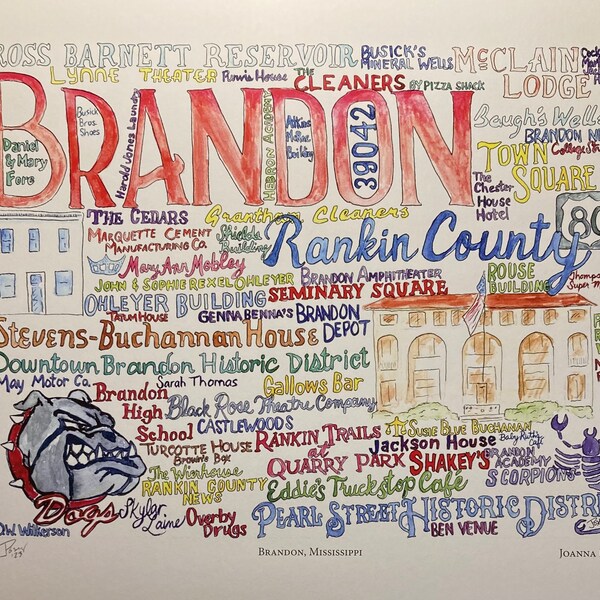 ROSS BARNETT RESERVOIR
BUSICK'S
MINERAL WELLS
McCLAIN
LODGE
LYNNE THEATER
Purvis House
THE
CLEANERS
BY PIZZA SHACK
BRANDON
Busick
Bros.
Shoes
Daniel
& Mary
Fore
Harold Jones Laundry
HEBRON ACADEMY
Building
39042
Baugh's Wells
BRANDON
College Street
TOWN
SQUARE
The
Chester
House
Hotel
80
THE CEDARS
Grantham Cleaners
MARQUETTE CEMENT
MANUFACTURING CO.
Shields
Building
Rankin County
Mary Ann Mobley
BRANDON AMPHITHEATER
ROUSE
BUILDING
JOHN & SOPHIE REXEL OHLEYER
OHLEYER BUILDING
SEMINARY SQUARE
TATUM HOUSE
GENNA BENNA'S
BRANDON
DEPOT
STEVENS-BUCHANNAN HOUSE
Downtown Brandon Historic District
May Motor Co.
Sarah Thomas
Gallows Bar
Brandon
High
School
Black Rose Theatre Company
CASTLEWOODS
SUSIE BLUE BUCHANAN
RANKIN TRAILS
at
QUARRY PARK
Jackson House
Baby Ruth's
Café
TURCOTTE HOUSE
Brown's Box
SHAKEYS
BRANDON
ACADEMY
SCORPIONS
The Wienhouse
RANKIN COUNTY
NEWS
Eddie's Truckstop Café
Dogs
Skylar
Laine
Overby
Drugs
PEARL STREET HISTORIC DISTRI
BEN VENUE
Wilkerson
BRANDON, MISSISSIPPI
JOANNA